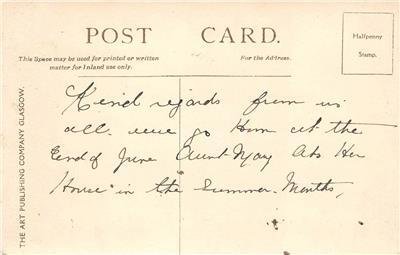 POST CARD.
Halfpenny
Stamp.
This Space may be used for printed or written
matter for Inland use only.
For the Address.
THE ART PUBLISHING COMPANY GLASGOW.
Kind regards from us
all. we go Hom at the
End of June Aunt May Ads Her
House in the Summer Months,